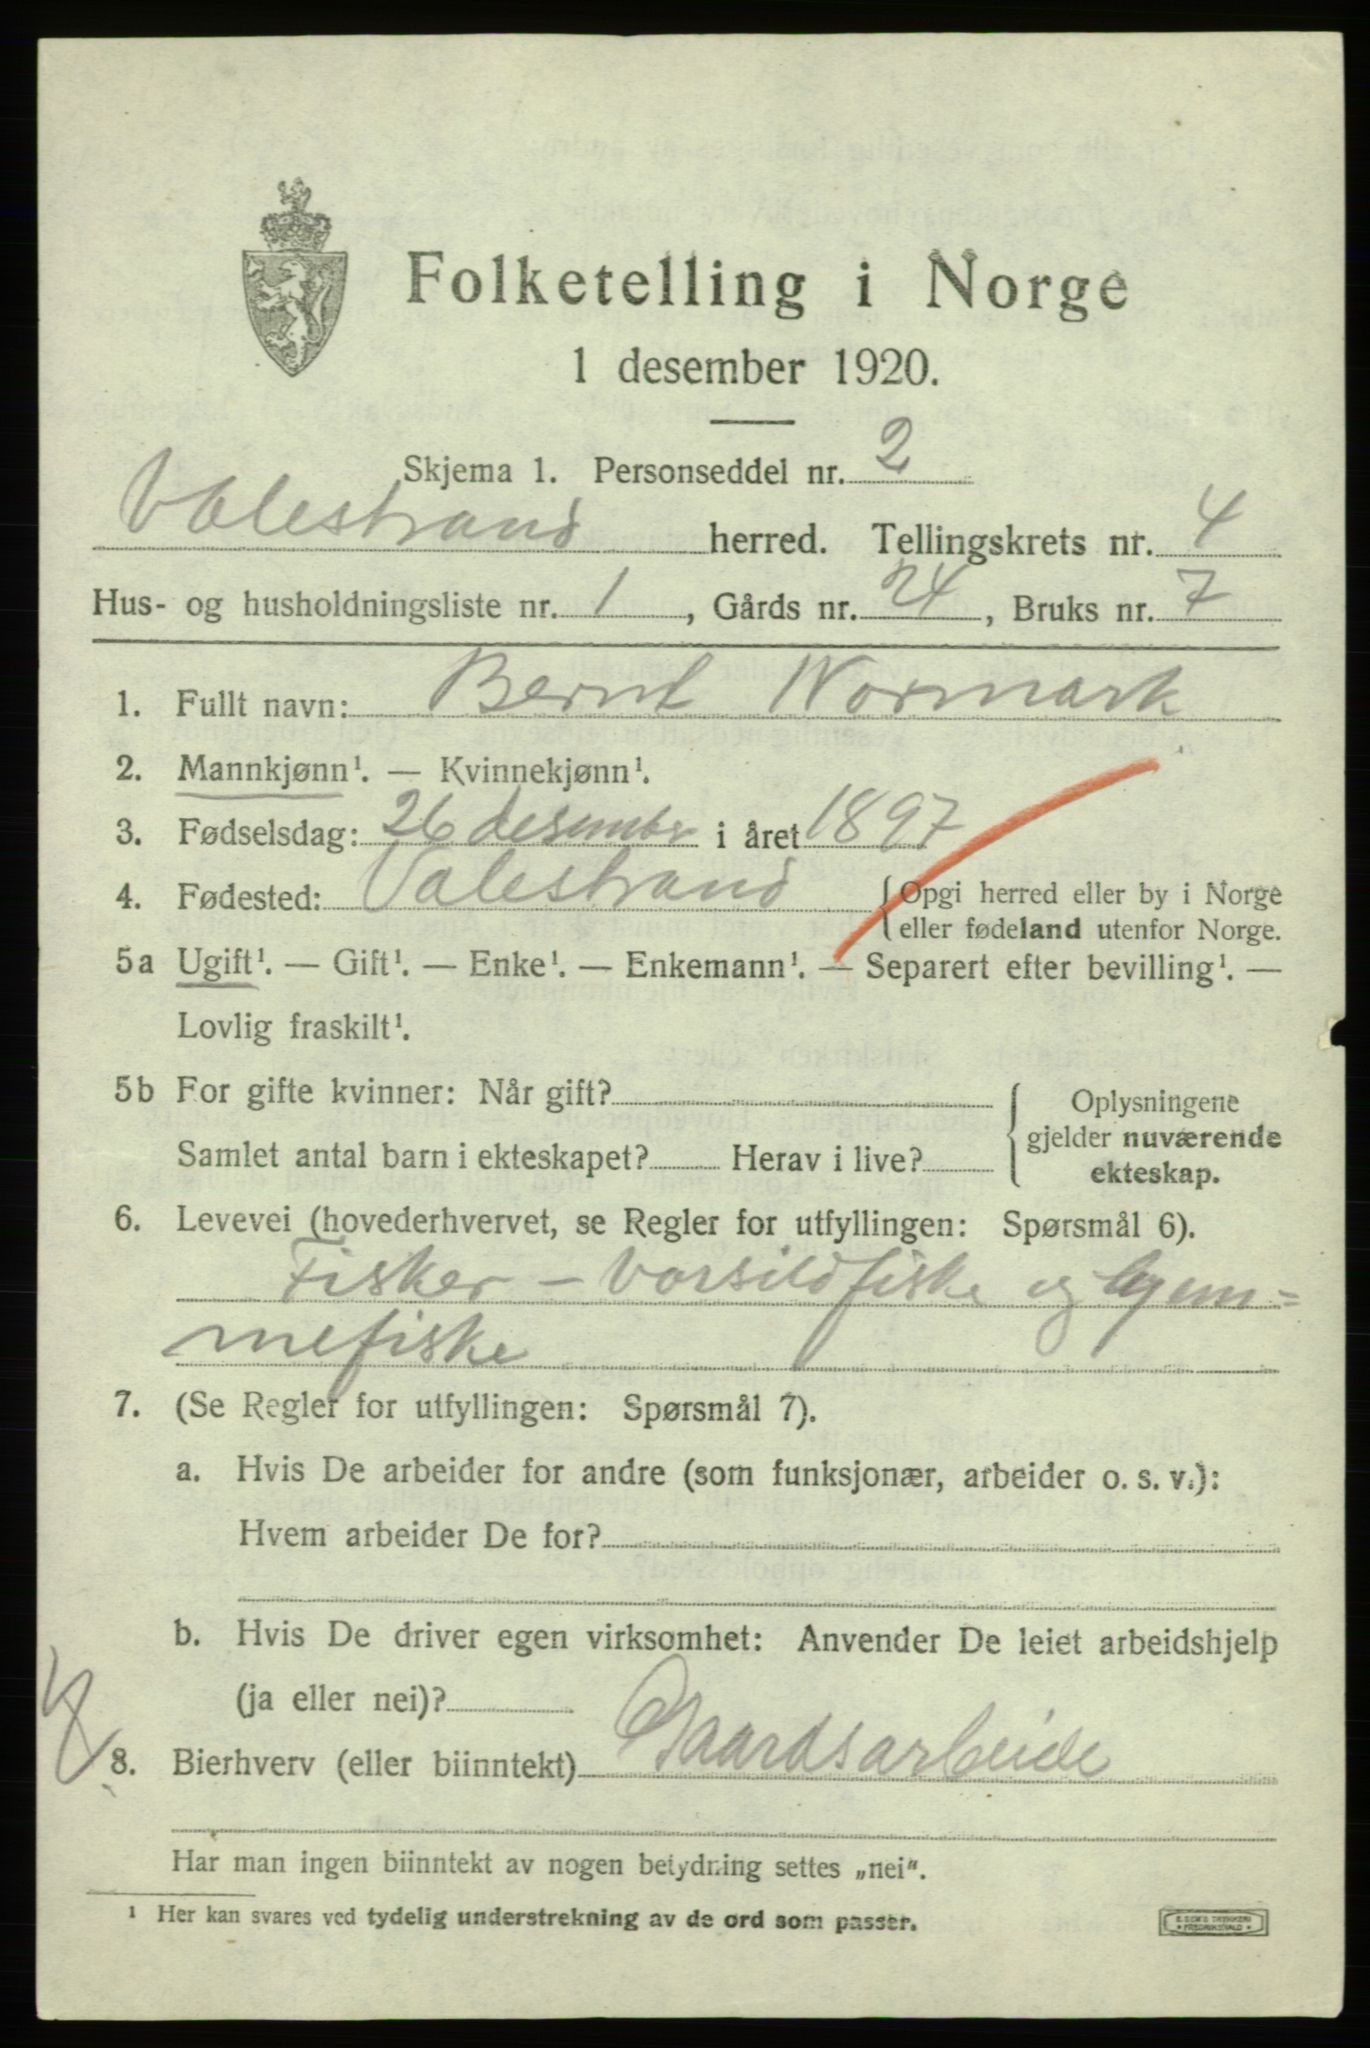 Folketelling i Norge
1 desember 1920.
Skjema 1. Personseddel nr. 2
Valestrand herred. Tellingskrets nr. 4
Hus- og husholdningsliste nr. 1, Gårds nr. 24, Bruks nr. 7
1. Fullt navn: Bernt Normark
2. Mannkjønn¹. — Kvinnekjønn¹.
3. Fødselsdag: 26 desember i året 1897
4. Fødested: Valestrand { Opgi herred eller by i Norge
eller fødeland utenfor Norge.
5a Ugift¹. — Gift¹. — Enke¹. — Enkemann¹. — Separert efter bevilling¹. —
Lovlig fraskilt¹.
5b For gifte kvinner: Når gift? { Oplysningene
gjelder nuværende
Samlet antal barn i ekteskapet? Herav i live?
ekteskap.
6. Levevei (hovederhvervet, se Regler for utfyllingen: Spørsmål 6).
Fisker - vorsildfiske og hjem-
mefiske
7. (Se Regler for utfyllingen: Spørsmål 7).
a. Hvis De arbeider for andre (som funksjonær, arbeider o. s. v.):
Hvem arbeider De for?
b. Hvis De driver egen virksomhet: Anvender De leiet arbeidshjelp
(ja eller nei)?
8. Bierhverv (eller biinntekt) Gaardsarbeide
Har man ingen biinntekt av nogen betydning settes „nei".
¹ Her kan svares ved tydelig understrekning av de ord som passer.